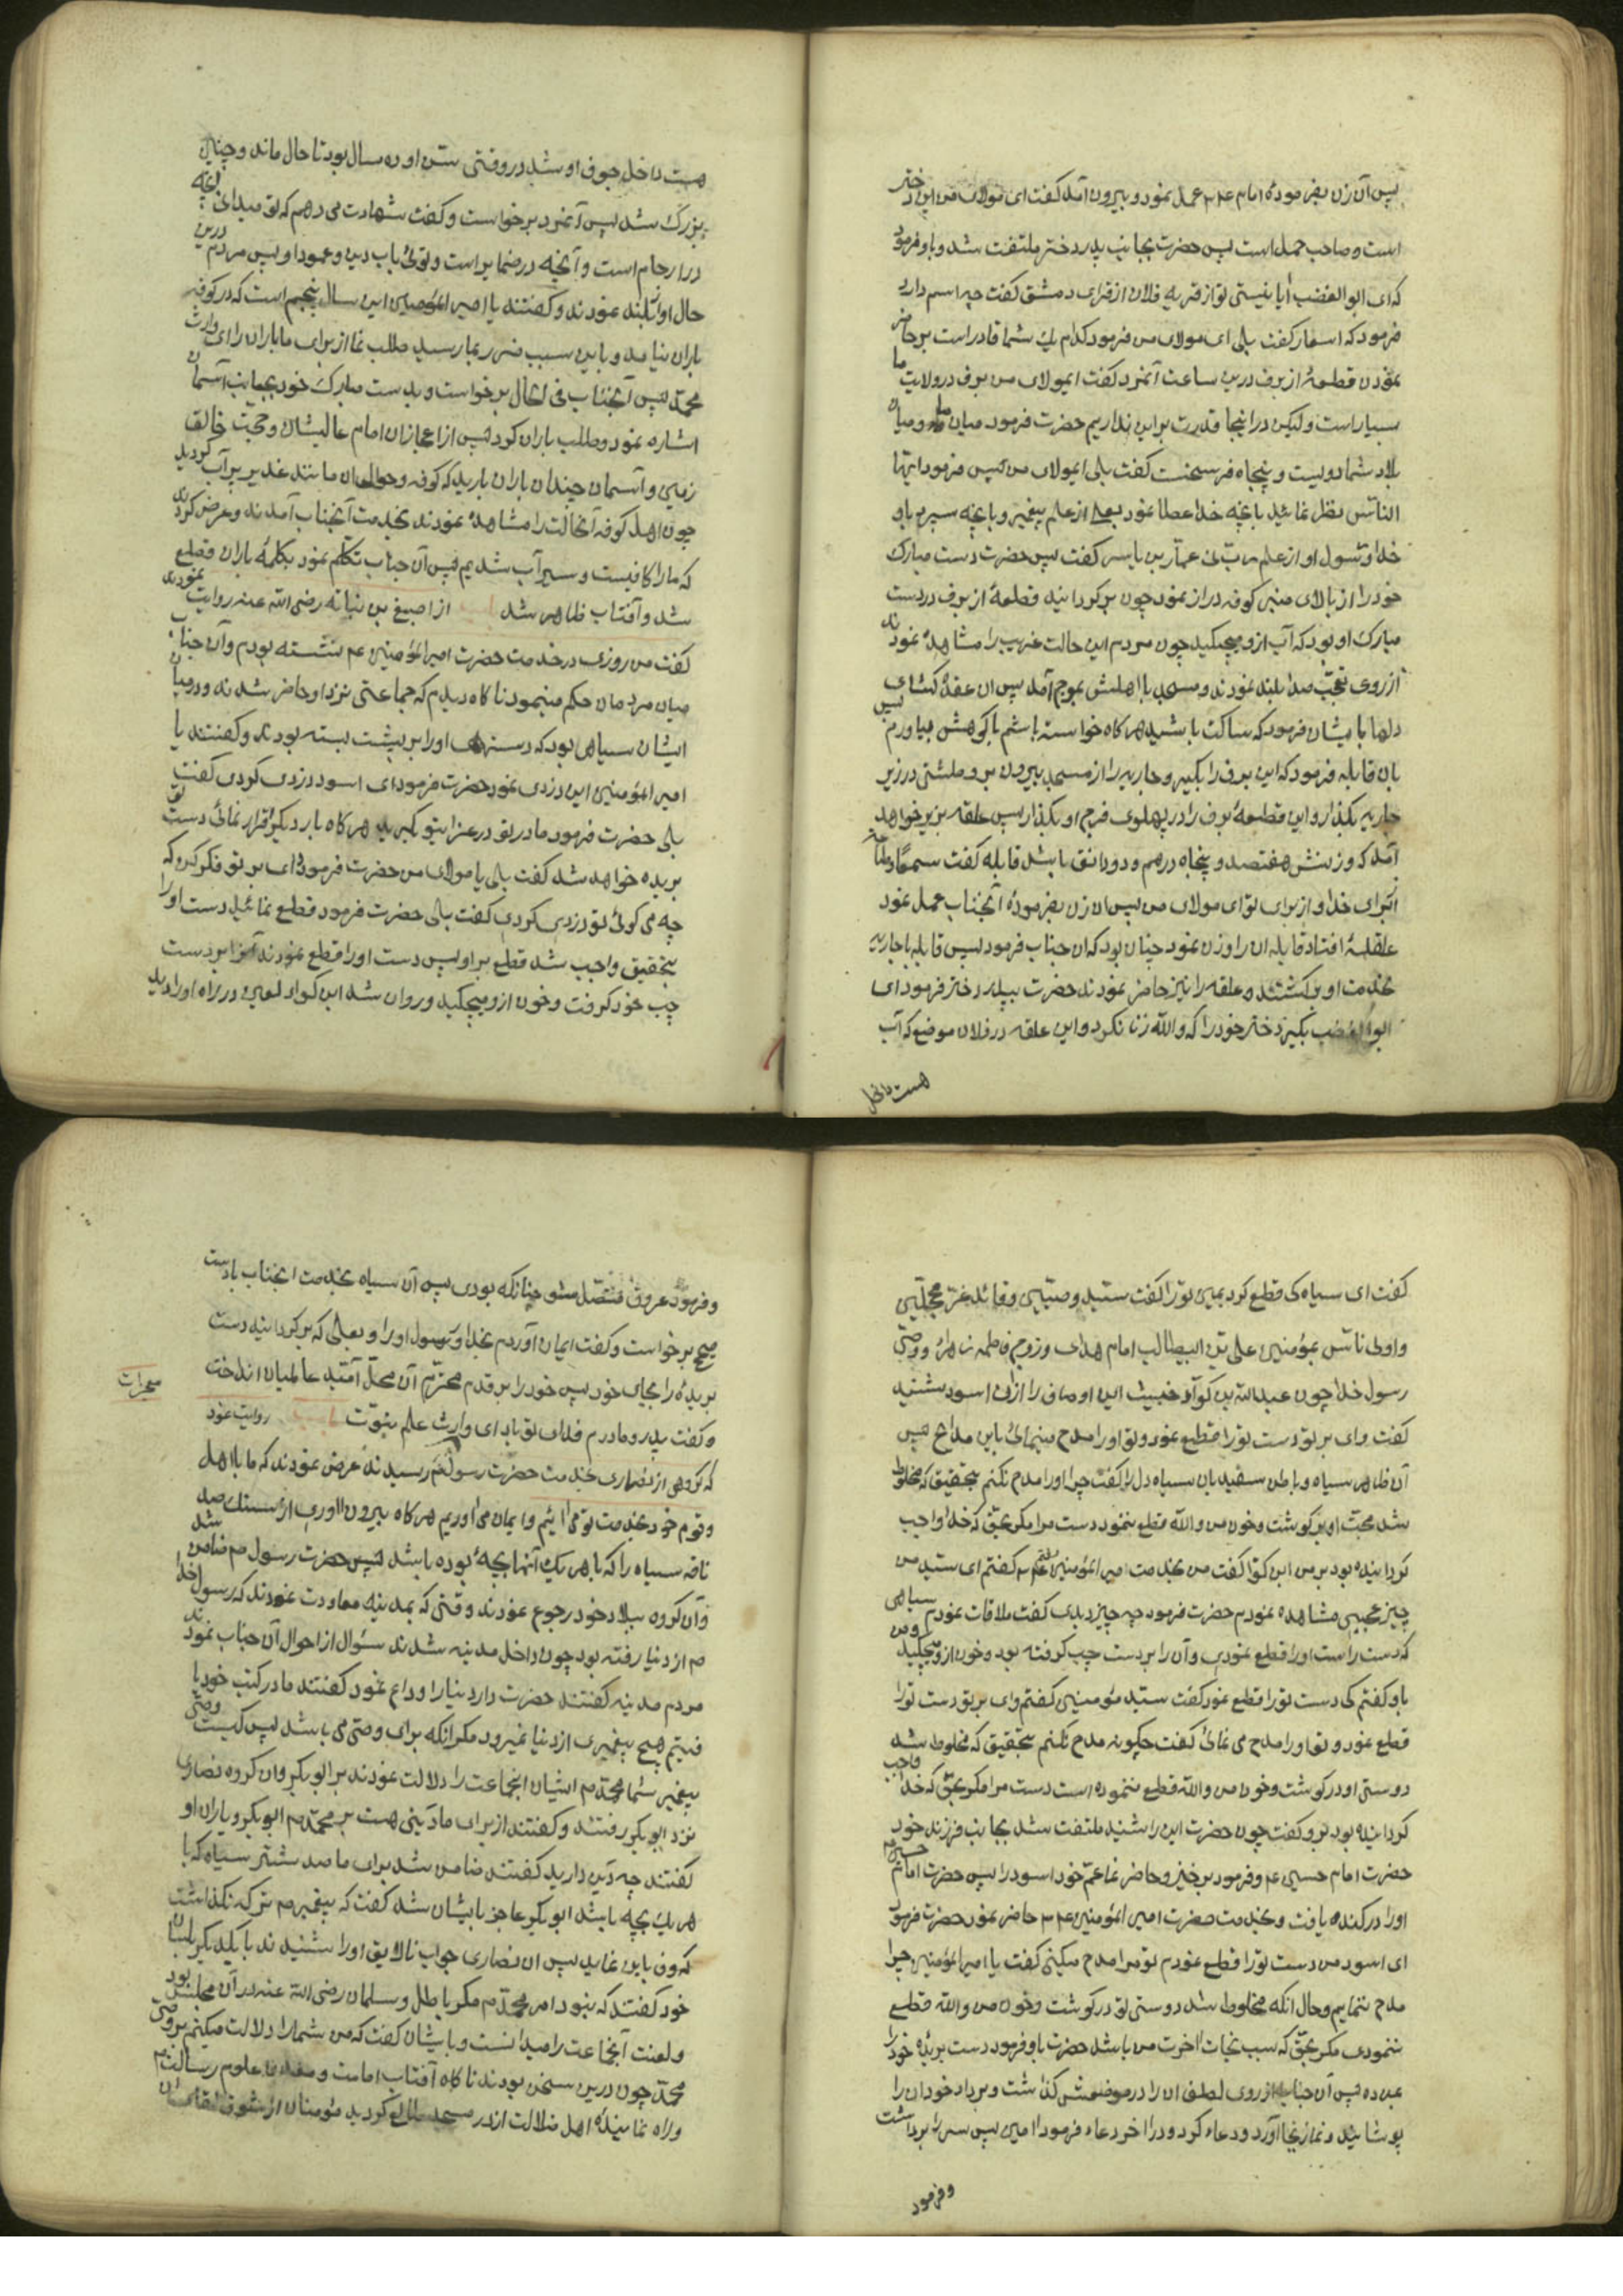 پس آن زن بفرمودهٔ امام ع م عمل نمود و بیرون آمد کفت ای مولای من این دختر
است و صاحب حمل است پس حضرت بجانب پدر دختر ملتفت شد و باو فرمود
که ای ابو الغضب آیا نیستی تو از قریه فلان از قرای دمشق کفت چه اسم دارد
فرمود که اسعار کفت بلی ای مولای من فرمود کدام یك شما قادر است بر حاضر
نمودن قطعهٔ از برف درین ساعت آنمرد کفت ایمولای من برف در ولایت ما
بسیار است ولیکن در اینجا قدرت بر این نداریم حضرت فرمود میان ما و میان
بلاد شما دویست و پنجاه فرسخست کفت بلی ایمولای من پس فرمود ایها
الناس نظر نمائید بآنچه خدا عطا نمود بعلی از علم پیغمبر و بآنچه سپرد باو
خدا و رسول او از علم ربّانی عمّار بن یاسر کفت پس حضرت دست مبارك
خود را از بالای منبر کوفه دراز نمود چون برکردانید قطعهٔ از برف در دست
مبارك او بود که آب ازو میچکید چون مردم این حالت غریب را مشاهدهٔ نمودند
از روی تعجّب صدا بلند نمودند و مسجد با اهلش بموج آمد پس آن عقدهٔ کشای
دلها بایشان فرمود که ساکت باشید هر کاه خواسته باشم با کوهش میاورم پس
بان قابله فرمود که این برف را بکیر و جاریه را از مسجد بیرون بر و طشتی در زیر
جاریه بکذار و این قطعهٔ برف را در پهلوی فرج او بکذار پس علقه بزیر خواهد
آمد که وزنش هفتصد و پنجاه درهم و دو دانق باشد قابله کفت سمعًا و طاعة
از برای خدا و از برای تو ای مولای من پس آن زن بفرمودهٔ آنجناب عمل نمود
علقهٔ افتاد قابله آن را وزن نمود چنان بود که آن جناب فرمود پس قابله با جاریه
بخدمت او برکشتند و علقه را نیز حاضر نمودند حضرت بپدر دختر فرمود ای
ابو الغضب بکیر دختر خود را که والله زنا نکرد و این علقه در فلان موضع که آب
هست داخل
هست داخل جوف او شد در وقتی سن او ده سال بود تا حال ماند و چنین
بزرك شد پس آنمرد برخواست و کفت شهادت می دهم که تو میدانی آنچه
در ارحام است و آنچه در ضمایر است و توئی باب دین و عمود او پس مردم درین
حال اواز بلند نمودند و کفتند یا امیر المؤمنین این سال پنجم است که در کوفه
باران نیامد و باین سبب ضرر بما رسید طلب نما از برای ما باران را ای وارث
محمّد پس آنجناب فی الحال برخواست و بدست مبارك خود بجانب آسمان
اشاره نمود و طلب باران کرد پس از اعجاز آن امام عالیشان و حجت خالق
زمین و آسمان چندان باران بارید که کوفه و حوالی آن مانند غدیر پر آب کردید
چون اهل کوفه آنحالت را مشاهدهٔ نمودند بخدمت آنجناب آمدند و عرض کردند
که ما را کافیست و سیر آب شدیم پس آن جناب تکلم نمود بکلمهٔ باران قطع
شد و آفتاب ظاهر شد از اصبغ بن نباته رضی الله عنه روایت نمودند
کفت من روزی در خدمت حضرت امیر المؤمنین ع م نشسته بودم و آن جناب
میان مردمان حکم مینمود ناکاه دیدم که جماعتی نزد او حاضر شدند و در میان
ایشان سیاهی بود که دستهای او را بر پشت بسته بودند و کفتند یا
امیر المؤمنین این دزدی نمود حضرت فرمود ای اسود دزدی کردی کفت
بلی حضرت فرمود مادر تو در عزا بتو کیرید هر کاه بار دیکر اقرار نمائی دست تو
بریده خواهد شد کفت بلی یا مولای من حضرت فرمود وای بر تو فکر کن که
چه می کوئی تو دزدی کردی کفت بلی حضرت فرمود قطع نمائید دست او را
بتحقیق واجب شد قطع بر او پس دست او را قطع نمودند آنرا بر دست
چپ خود کرفت و خون ازو میچکید و روان شد ابن کواء لعین در راه او را دید
کفت ای سیاه کی قطع کرد یمین تو را کفت سیّد وصیّین و قائد غرّ محجّلین
و اولی ناس بمؤمنین علی بن ابیطالب امام هدی و زوج فاطمه زهرا و وصیّ
رسول خدا چون عبدالله بن کوآء خبیث این اوصاف را از آن اسود شنید
کفت وای بر تو دست تو را قطع نمود و تو او را مدح مینمائی باین مدایح پس
آن ظاهر سیاه و باطن سفید بان سیاه دل کفت چرا او را مدح نکنم بتحقیق که مخلوط
شد محبّت او بر کوشت و خون من والله قطع ننمود دست مرا مکر بحقی که خدا واجب
کردانیده بود بر من ابن کوّا کفت من بخدمت امیر المؤمنین ع م رفتم کفتم ای سیّد من
چیز عجیبی مشاهده نمودم حضرت فرمود چه چیز دیدی کفت ملاقات نمودم سیاهی
که دست راست او را قطع نمودی و آن را بر دست چپ کرفته بود و خون ازو میچکید و من
باو کفتم کی دست تو را قطع نمود کفت سیّد مؤمنین کفتم وای بر تو دست تو را
قطع نمود و تو او را مدح می نمائی کفت چکونه مدح نکنم بتحقیق که مخلوط شد
دوستی او در کوشت و خون من والله قطع ننموده است دست مرا مکر بحقّی که خدا واجب
کردانیده بود برو کفت چون حضرت این را شنید ملتفت شد بجانب فرزند خود
حضرت امام حسین ع م و فرمود برخیز و حاضر نما عمّ خود اسود را پس حضرت امام حسین ع م
او را در کنده یافت و بخدمت حضرت امیر المؤمنین ع م حاضر نمود حضرت فرمود
ای اسود من دست تو را قطع نمودم تو مرا مدح میکنی کفت یا امیر المؤمنین چرا
مدح ننمایم و حال آنکه مخلوط شد دوستی تو در کوشت و خون من والله قطع
ننمودی مکر بحقّی که سبب نجات آخرت من باشد حضرت باو فرمود دست بریدهٔ خود را
بمن ده پس آن جناب از روی لطف آن را در موضعش کذاشت و برداء خود آن را
پوشانید و نماز بجا آورد و دعاء کرد و در آخر دعاء فرمود آمین پس سر را برداشت
و فرمود
و فرمود عروق متّصل شو چنانکه بودی پس آن سیاه بخدمت انجناب با دست
صحیح برخواست و کفت ایمان آوردم بخدا و رسول او را و بعلی که برکردانید دست
بریدهٔ را بجای خود پس خود را بر قدم محترم آن محلّ آمّید عالمیان انداخت
و کفت پدر و مادرم فدای تو باد ای وارث علم نبوّت روایت نمود
معجزات
که کروهی از نصاری بخدمت حضرت رسول ص م رسیدند عرض نمودند که ما با اهل
و قوم خود بخدمت تو می آئیم و ایمان می آوریم هر کاه بیرون آوری از سنك صد
ناقه سیاه را که با هر یك آنها بچهٔ بوده باشد پس حضرت رسول ص م ضامن شد
و آن کروه ببلاد خود رجوع نمودند وقتی که بمدینه معاودت نمودند که رسول خدا
ص م از دنیا رفته بود چون داخل مدینه شدند سئوال از احوال آن جناب نمودند
مردم مدینه کفتند حضرت دار دنیا را وداع نمود کفتند ما در کتب خود یا
فتیم هیچ پیغمبری از دنیا نمیرود مکر آنکه برای وصیّ می باشد پس کیست وصیّ
پیغمبر شما محمّد ص م ایشان انجماعت را دلالت نمودند بر ابو بکر و آن کروه نصاری
نزد ابو بکر رفتند و کفتند از برای ما دینی هست بر محمّد ص م ابو بکر و یاران او
کفتند چه دین دارید کفتند ضامن شد برای ما صد شتر سیاه که با
هر یك بچه باشد ابو بکر عاجز بایشان شد کفت که پیغمبر ص م ترکه نکذاشت
که وفا باین نماید پس آن نصاری جواب نالایق او را شنیدند با یکدیکر بلسان
خود کفتند که نبود امر محمّد ص م مکر باطل و سلمان رضی الله عنه در آن مجلس بود
و لغت آنجماعت را میدانست و بایشان کفت که من شما را دلالت میکنم بر وصیّ
محمّد چون درین سخن بودند ناکاه آفتاب امامت و علوم رسالت
و راه نمایندهٔ اهل ضلالت از در مسجد طالع کردید مؤمنان از شوق